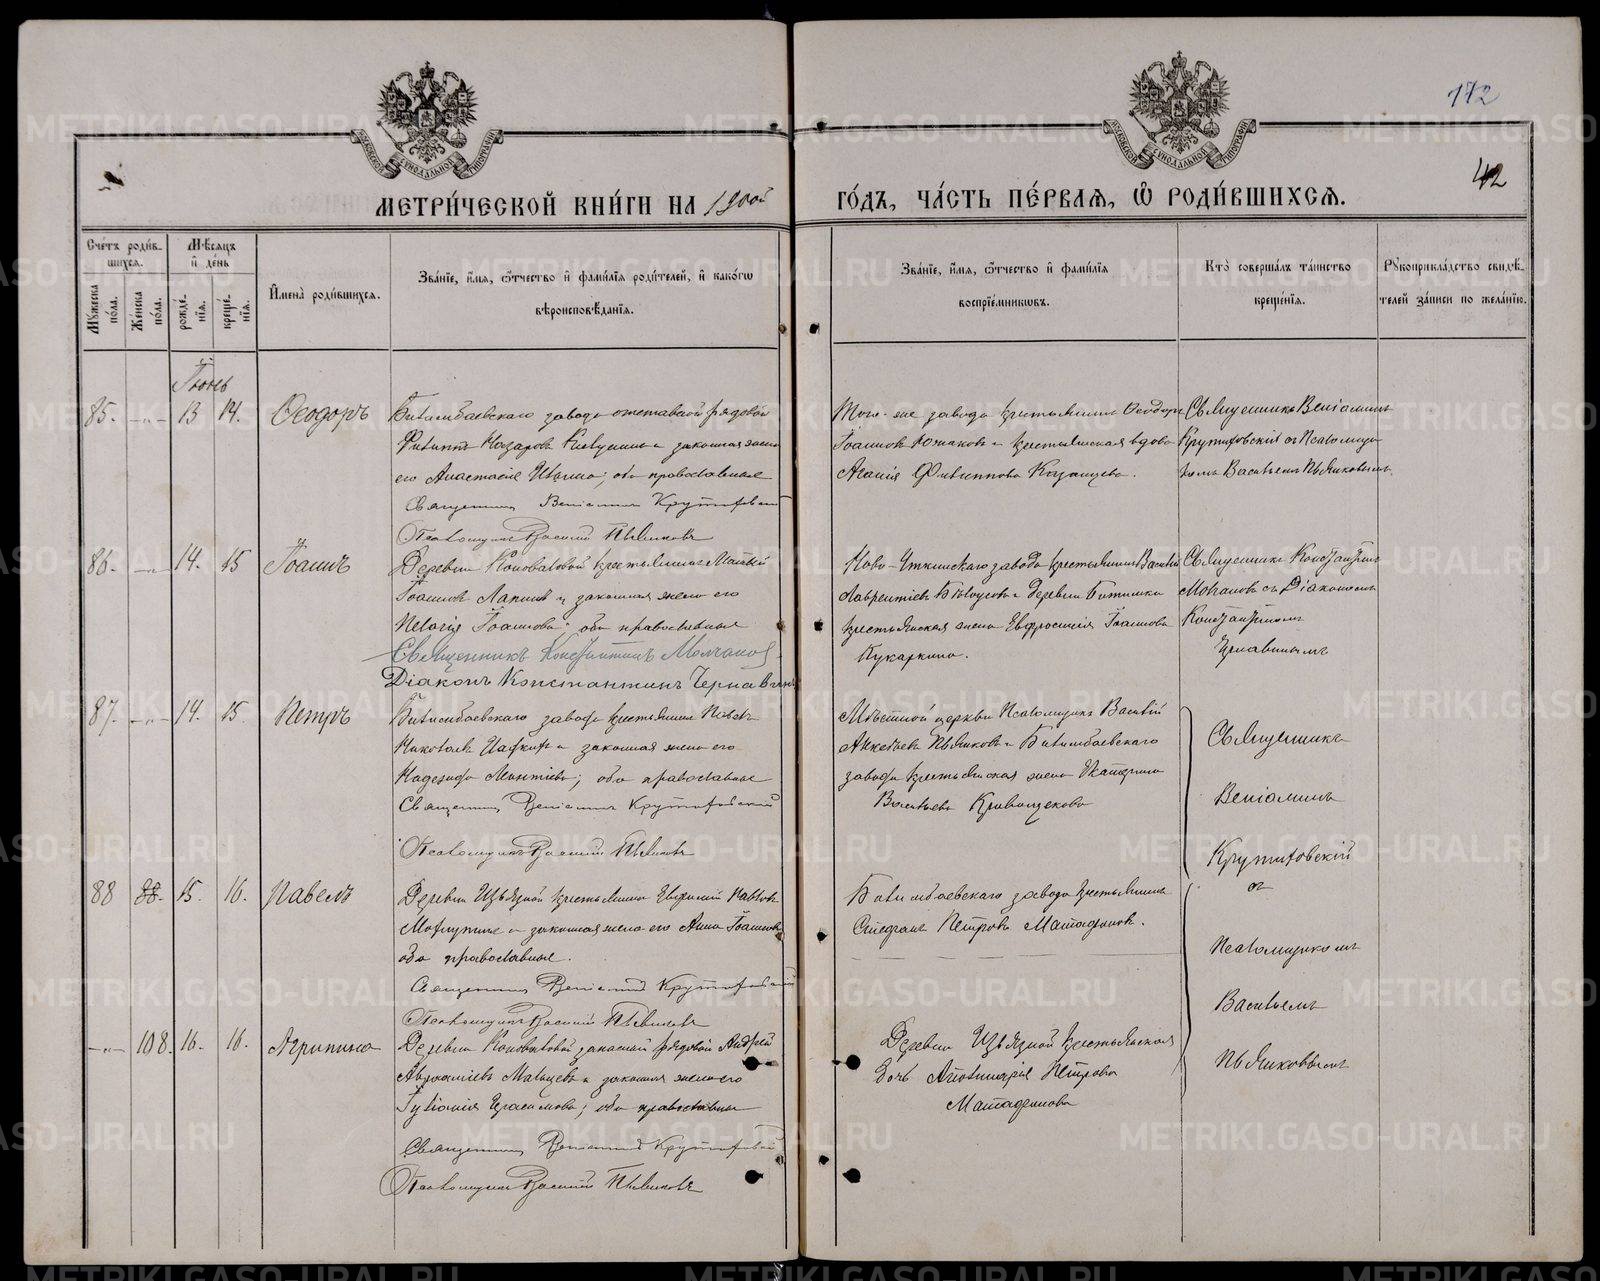 172
42
МЕТРИ́ЧЕСКОЙ КНИ́ГИ НА 1900й ГО́ДЪ, ЧА́СТЬ ПЕ́РВАЯ, Ѡ РОДИ́ВШИХСЯ.
Сче́тъ роди́в-
шихся.
Му́жеска по́ла.
Же́нска по́ла.
Мѣ́сяцъ
и де́нь
рожде́-
нїя.
креще́-
нїя.
И҆мена̀ роди́вшихся.
Зва́нїе, и҆́мя, ѻ҆́тчество и҆ фами́лїя роди́телей, и҆ како́гѡ
вѣроисповѣ́данїя.
Зва́нїе, и҆́мя, ѻ҆́тчество и҆ фами́лїя
воспрїе́мникѡвъ.
Кто̀ соверша́лъ та́инство
креще́нїя.
Рꙋкоприкла́дство свидѣ́-
телей за́писи по жела́нїю.
Іюнь
85. -„- 13 14. Ѳеодоръ
Билимбаевскаго завода отставной рядовой
Филиппъ Назаровъ и законная жена
его Анастасія оба православные
Священник Веніамин Крутиховский
Псаломщикъ Василий Пьянковъ
Того-же завода крестьянинъ Ѳеодоръ
Іоанновъ Южаковъ и крестьянская вдова
Агапія Филиппова Казанцева.
Священникъ Веніаминъ
Крутиховскій съ Псаломщи-
комъ Васильемъ Пьянковымъ.
86. -„- 14. 15 Іоаннъ
Деревни Коноваловой крестьянинъ Матѳій
Іоанновъ Лапинъ и законная жена его
Пелагія Іоаннова; оба православные
Священникъ Константинъ Молчановъ.
Діаконъ Константинъ Чернавинъ
Ново-Уткинскаго завода крестьянинъ Василій
Лаврентіевъ Бѣлоусовъ и деревни Битимки
крестьянская жена Евфросинія Іоаннова
Кукаркина.
Священникъ Константинъ
Молчановъ съ Діакономъ
Константиномъ
Чернавинымъ
87. -„- 14. 15. Петръ
Билимбаевскаго завода крестьянинъ Павелъ
Николаевъ и законная жена его
Надежда оба православные
Священник Веніамин Крутиховский
Псаломщикъ Василий Пьянковъ
Мѣстной церкви Псаломщикъ Василій
Алексѣевъ Пьянковъ и Билимбаевскаго
завода крестьянская жена Екатерина
Васильева Кривощекова
Священникъ
Веніаминъ
Крутиховскій
съ
Псаломщикомъ
Васильемъ
Пьянковымъ
88 88. 15. 16. Павелъ
Деревни Извѣздной крестьянинъ Евгений Павловъ
и законная жена его Анна Іоаннова
оба православные.
Священник Веніамин Крутиховский
Псаломщикъ Василий Пьянковъ
Билимбаевскаго завода крестьянинъ
Стефанъ Петровъ Матафоновъ.
-„- 108. 16. 16. Агрипина
Деревни Коноваловой запасный рядовой Андрей
Авраамievъ Мальцевъ и законная жена его
Гуліанія Герасимова; оба православные
Священник Веніамин Крутиховский
Псаломщикъ Василий Пьянковъ
Деревни Извѣздной крестьянская
дочь Аполинарія Петрова
Матафонова